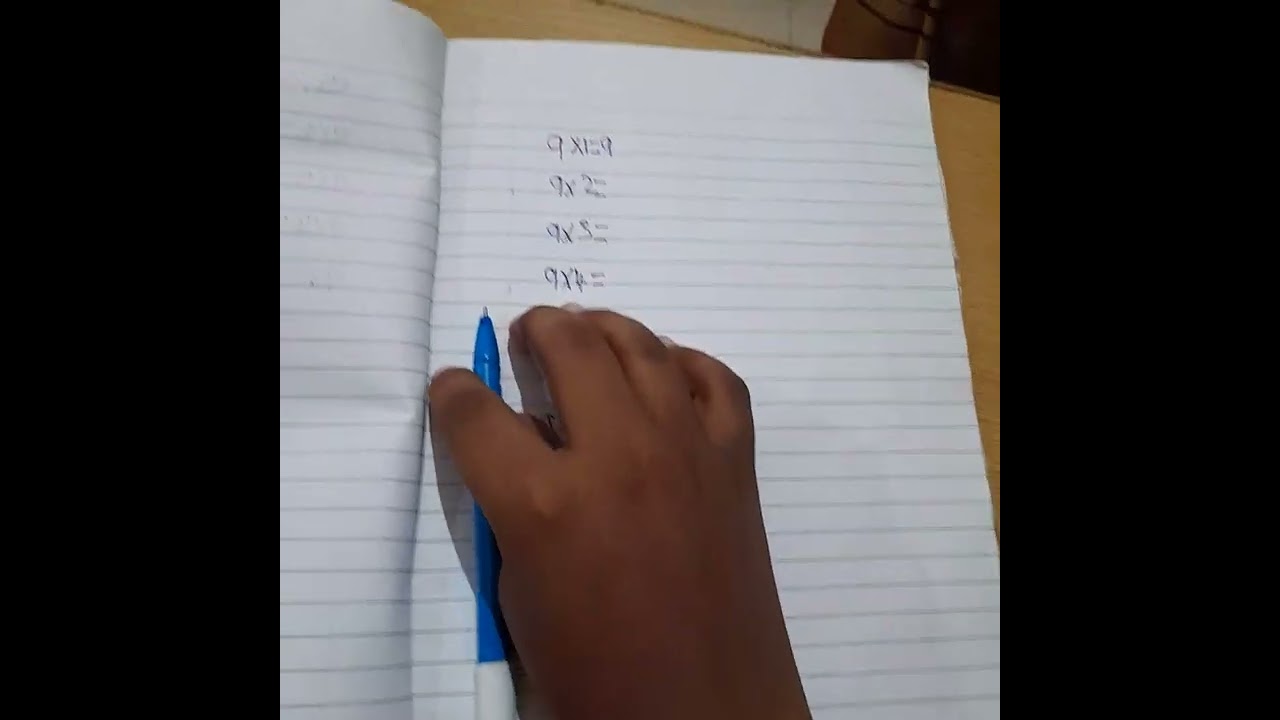 9x1=9
9x2=
9x3=
9x4=